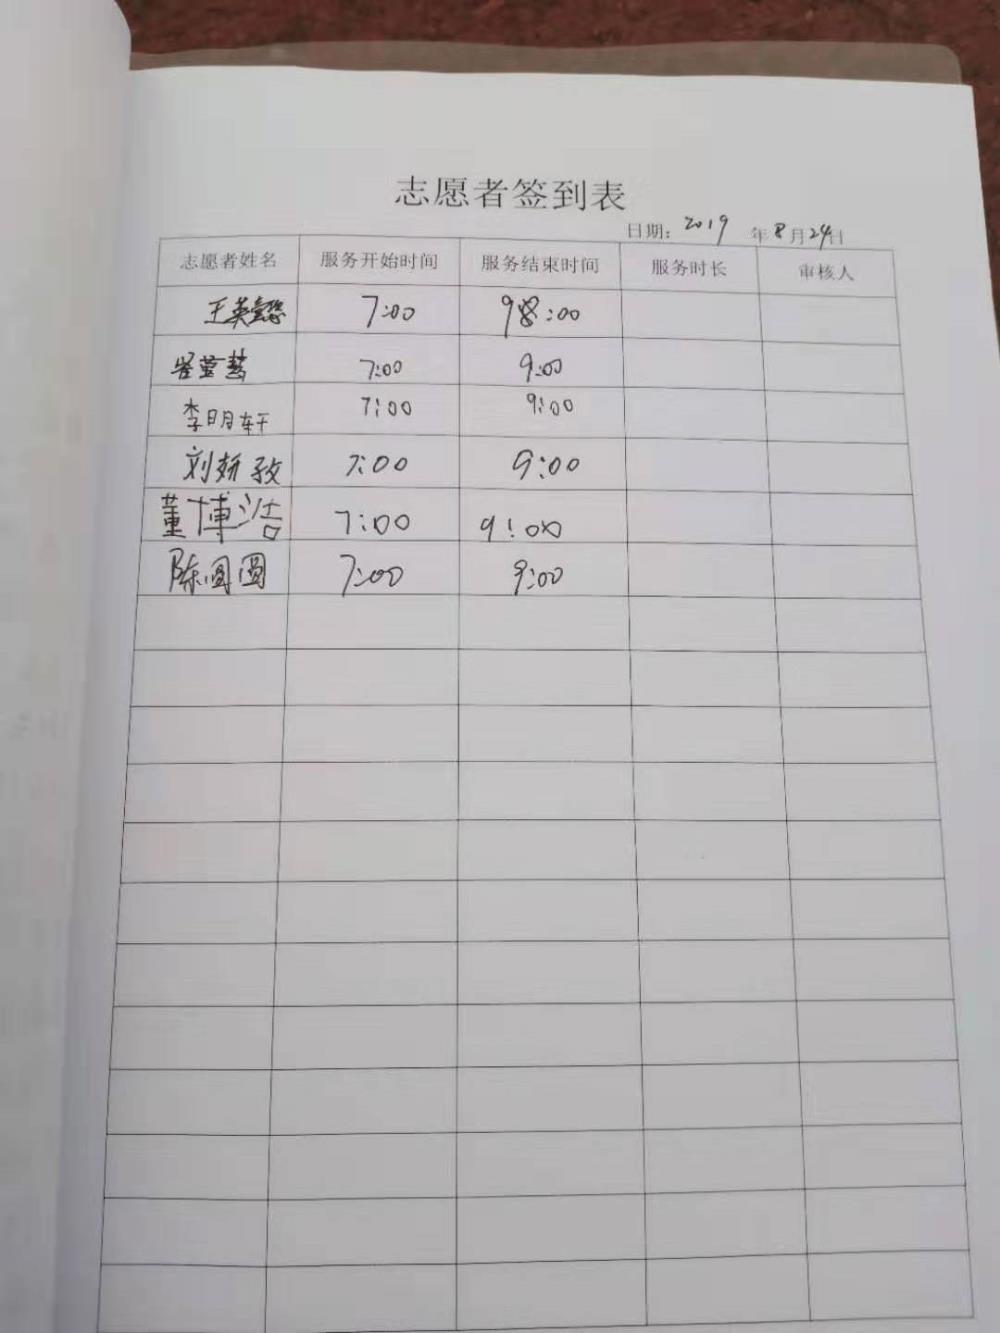 志愿者签到表
日期: 2019 年 8 月 24 日
志愿者姓名 服务开始时间 服务结束时间 服务时长 审核人
王英懿 7:00 9:00
7:00 9:00
李明轩 7:00 9:00
刘妍孜 7:00 9:00
董博浩 7:00 9:00
陈圆圆 7:00 9:00